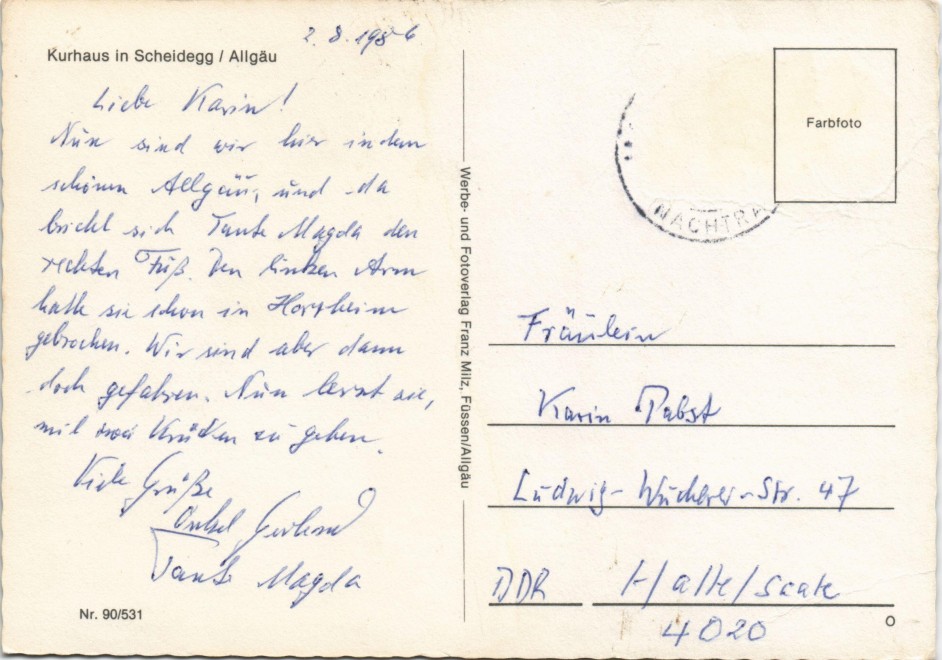 2.8.1986
Kurhaus in Scheidegg / Allgäu
Liebe Karin!
Nun sind wir hier in dem
schönen Allgäu, und da
bricht sich Tante Magda den
rechten Fuß. Den linken Arm
hatte sie schon in
gebrochen. Wir sind aber dann
doch gefahren. Nun lernt sie,
mit zwei Krücken zu gehen.
Viele Grüße
Onkel
Tante Magda
Nr. 90/531
Werbe- und Fotoverlag Franz Milz, Füssen/Allgäu
Farbfoto
NACHTRA
Fräulein
Karin Pabst
Ludwig-Wucherer-Str. 47
DDR Halle/Saale
4020
O